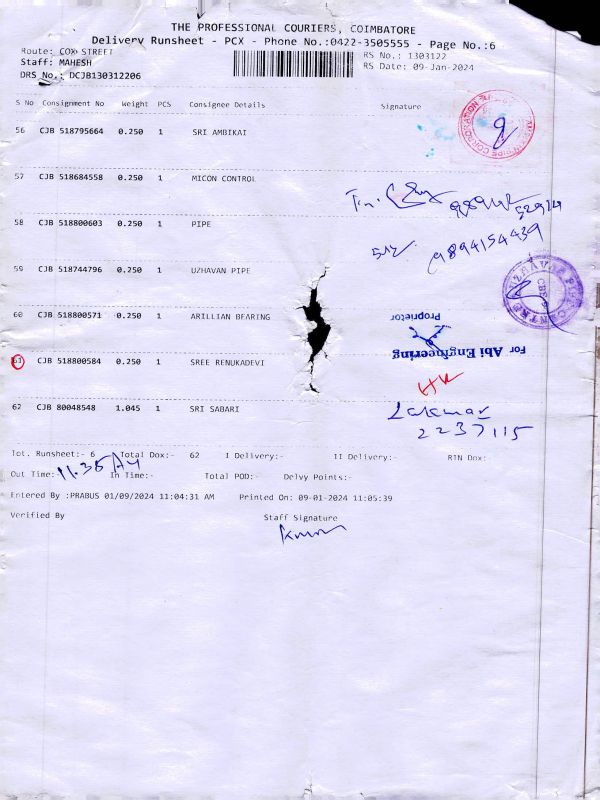 THE PROFESSIONAL COURIERS, COIMBATORE
Delivery Runsheet - PCX - Phone No.:0422-3505555 - Page No.:6
Route: COX STREET
RS No.: 1303122
Staff: MAHESH
RS Date: 09-Jan-2024
DRS No.: DCJB130312206
S No Consignment No Weight PCS Consignee Details Signature
56 CJB 518795664 0.250 1 SRI AMBIKAI
57 CJB 518684558 0.250 1 MICON CONTROL
58 CJB 518800603 0.250 1 PIPE
9894154439
59 CJB 518744796 0.250 1 UZHAVAN PIPE
60 CJB 518800571 0.250 1 ARILLIAN BEARING
For Abi Engineering
Proprietor
61 CJB 518800584 0.250 1 SREE RENUKADEVI
62 CJB 80048548 1.045 1 SRI SABARI
2237115
Tot. Runsheet:- 6 Total Dox:- 62 I Delivery:- II Delivery:- RTN Dox:
Out Time: 11.35 AM In Time:- Total POD:- Delvy Points:-
Entered By :PRABUS 01/09/2024 11:04:31 AM Printed On: 09-01-2024 11:05:39
Verified By Staff Signature